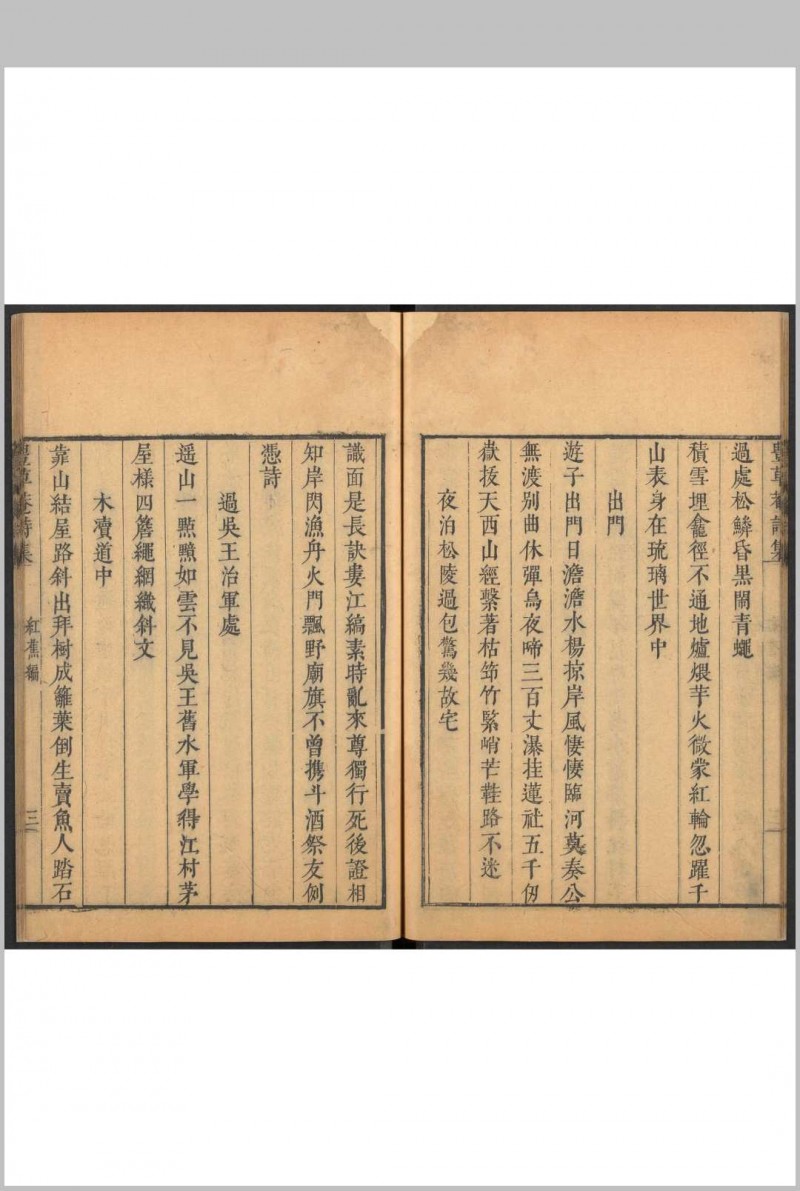 豐草菴詩集
過處松鱗昏黑鬧青蠅
積雪埋龕徑不通地爐煨芋火微蒙紅輪忽躍千
山表身在琉璃世界中
出門
遊子出門日澹澹水楊掠岸風悽悽臨河莫奏公
無渡別曲休彈烏夜啼三百丈瀑挂蓮社五千仞
嶽拔天西山經繫著枯笻竹緊峭芒鞋路不迷
夜泊松陵過包驚幾故宅
識面是長訣婁江縞素時亂來尊獨行死後證相
知岸閃漁舟火門飄野廟旗不曾携斗酒祭友倒
憑詩
過吳王治軍處
遥山一㸃㸃如雲不見吳王舊水軍學得江村茅
屋樣四簷繩網織斜文
木瀆道中
靠山結屋路斜出拜樹成籬葉倒生賣魚人踏石
豐草菴詩集
紅蕉編
三